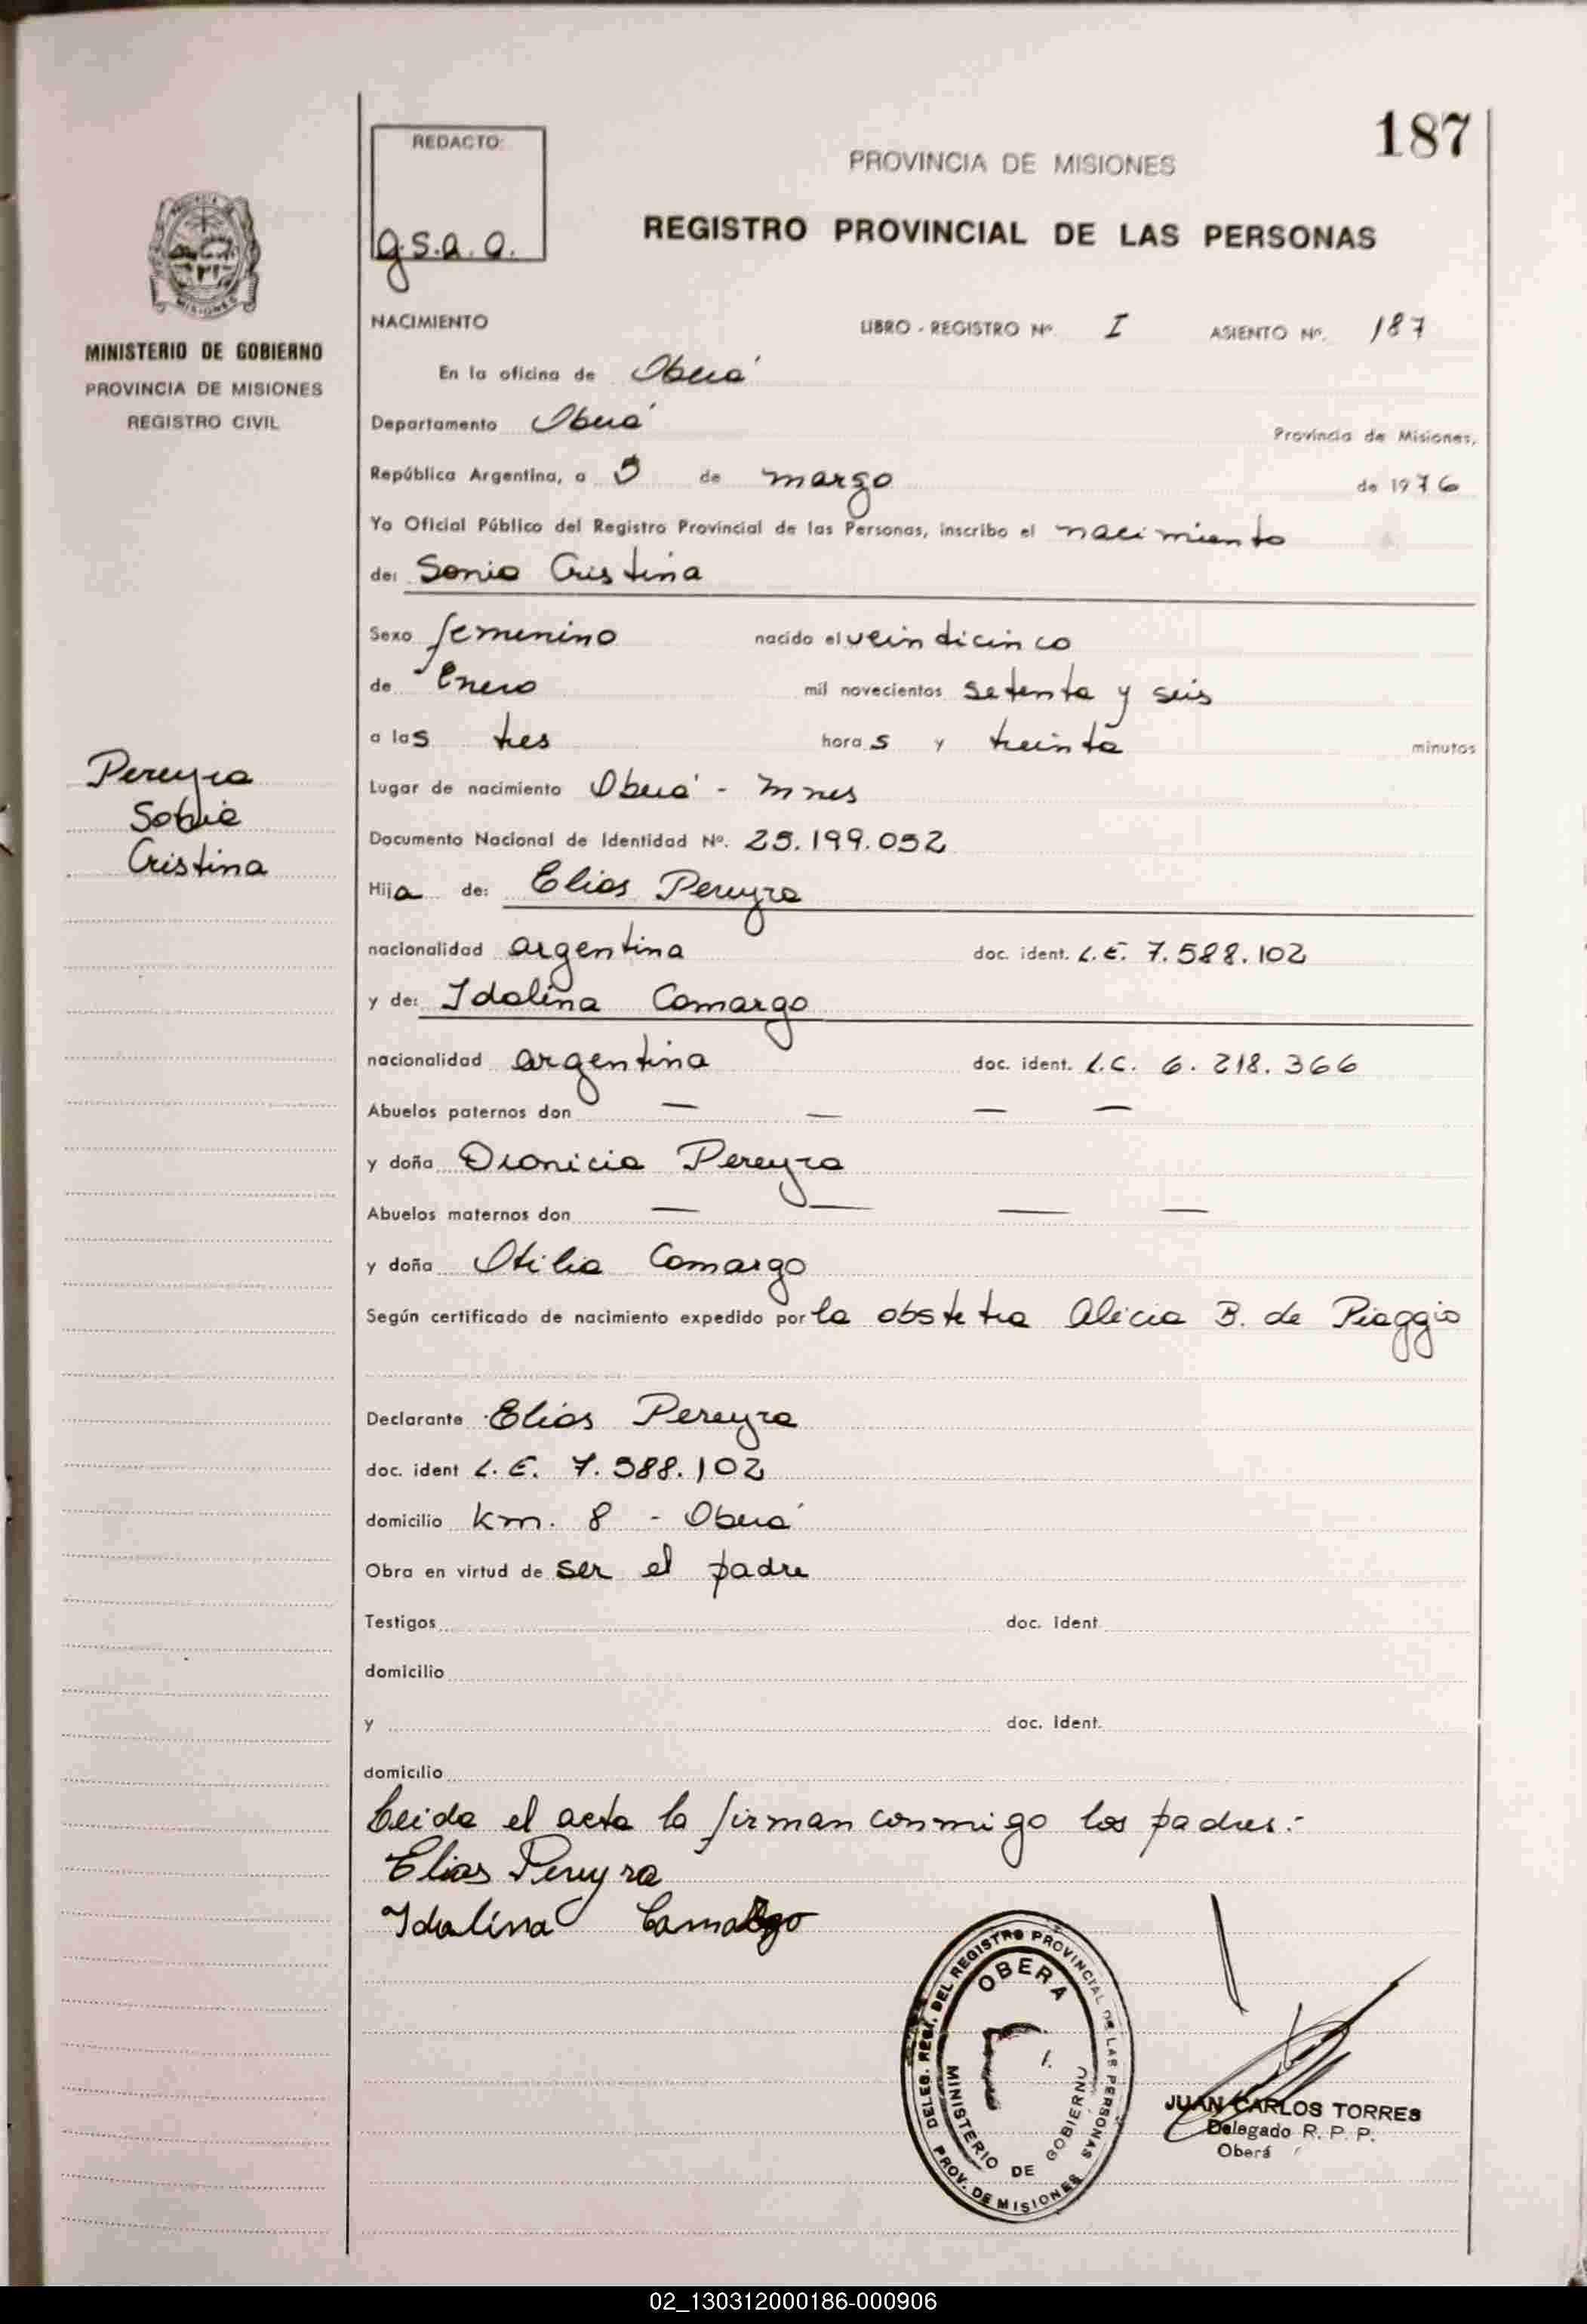 187
REDACTO:
g.s.a.o.
PROVINCIA DE MISIONES
REGISTRO PROVINCIAL DE LAS PERSONAS
MINISTERIO DE GOBIERNO
PROVINCIA DE MISIONES
REGISTRO CIVIL
NACIMIENTO LIBRO - REGISTRO Nº. I ASIENTO Nº. 187
En la oficina de Oberá
Departamento Oberá Provincia de Misiones,
República Argentina, a 5 de marzo de 1976
Yo Oficial Público del Registro Provincial de las Personas, inscribo el nacimiento
de: Sonia Cristina
Sexo femenino nacido el veindicinco
de Enero mil novecientos setenta y seis
a las tres horas y treinta minutos
Pereyra
Cristina
Lugar de nacimiento Oberá - Mnes
Documento Nacional de Identidad Nº. 25.199.052
Hija de: Elias Pereyra
nacionalidad argentina doc. ident. L.E. 7.588.102
y de: Idalina Camargo
nacionalidad argentina doc. ident. L.C. 6.218.366
Abuelos paternos don — — — —
y doña Dionicia Pereyra
Abuelos maternos don — — — —
y doña Otilia Camargo
Según certificado de nacimiento expedido por la obstetra Alicia B. de Piaggio
Declarante Elias Pereyra
doc. ident L.E. 7.588.102
domicilio km. 8 - Oberá
Obra en virtud de ser el padre
Testigos doc. ident.
domicilio
y doc. ident.
domicilio
Leida el acta la firman conmigo los padres:-
Elias Pereyra
Idalina Camargo
DELEG. REGI. DEL REGISTRO PROVINCIAL DE LAS PERSONAS
OBERA
MINISTERIO DE GOBIERNO
PROV. DE MISIONES
JUAN CARLOS TORRES
Delegado R. P. P.
Oberá
02_130312000186-000906